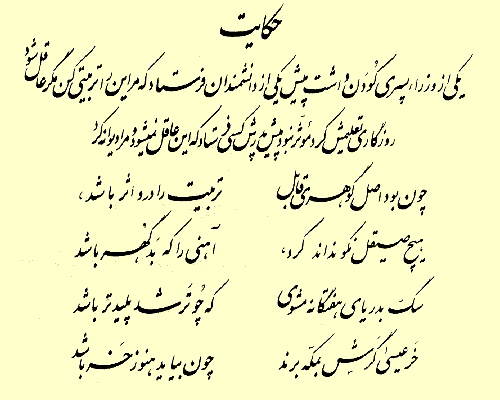 حکایت
یکی از وزراء پسری کودن داشت پیش یکی از دانشمندان فرستاد که مر این را تربیتی کن مگر عاقل شود
روزگاری تعلیمش کرد مؤثر نبود پیش پدرش کسی فرستاد که این عاقل نمیشود و مرا دیوانه کرد
چون بود اصل گوهری قابل تربیت را درو اثر باشد،
هیچ صیقل نکو نداند کرد، آهنی را که بدگهر باشد
سگ بدریای هفتگانه مشوی که چو تر شد پلیدتر باشد
خر عیسی گرش بمکه برند چون بیاید هنوز خر باشد